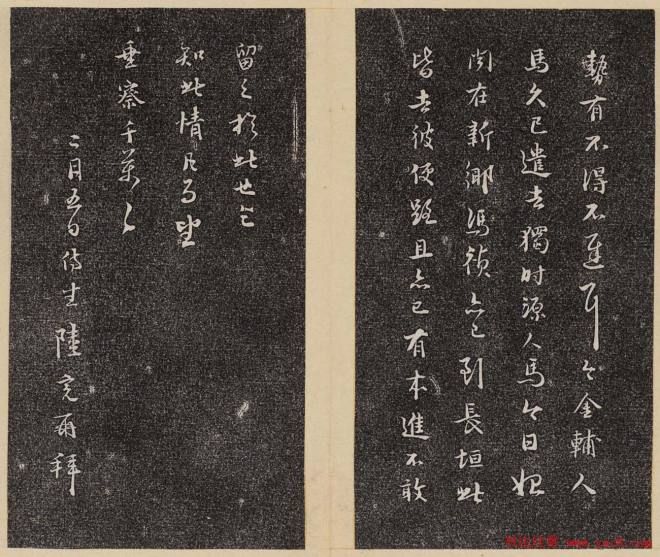 勢有不得不遲耳今金輔人
馬久已遣去獨時源人馬今日始
聞在新鄉馮禎亦已到長垣此
皆去彼便題且亦已有本進不敢
留之於此也乞
知此情凡百望
垂察千萬々
二月五日侍生陸完再拜